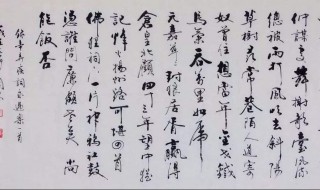 仲謀處舞榭歌臺風流
總被雨打風吹去斜陽
草樹尋常巷陌人道寄
奴曾住想當年金戈鐵
馬氣吞萬里如虎
元嘉草草封狼居胥贏得
倉皇北顧四十三年望中猶
記烽火揚州路可堪回首
佛狸祠下一片神鴉社鼓
憑誰問廉頗老矣尚
能飯否
辛棄疾詞永遇樂一首